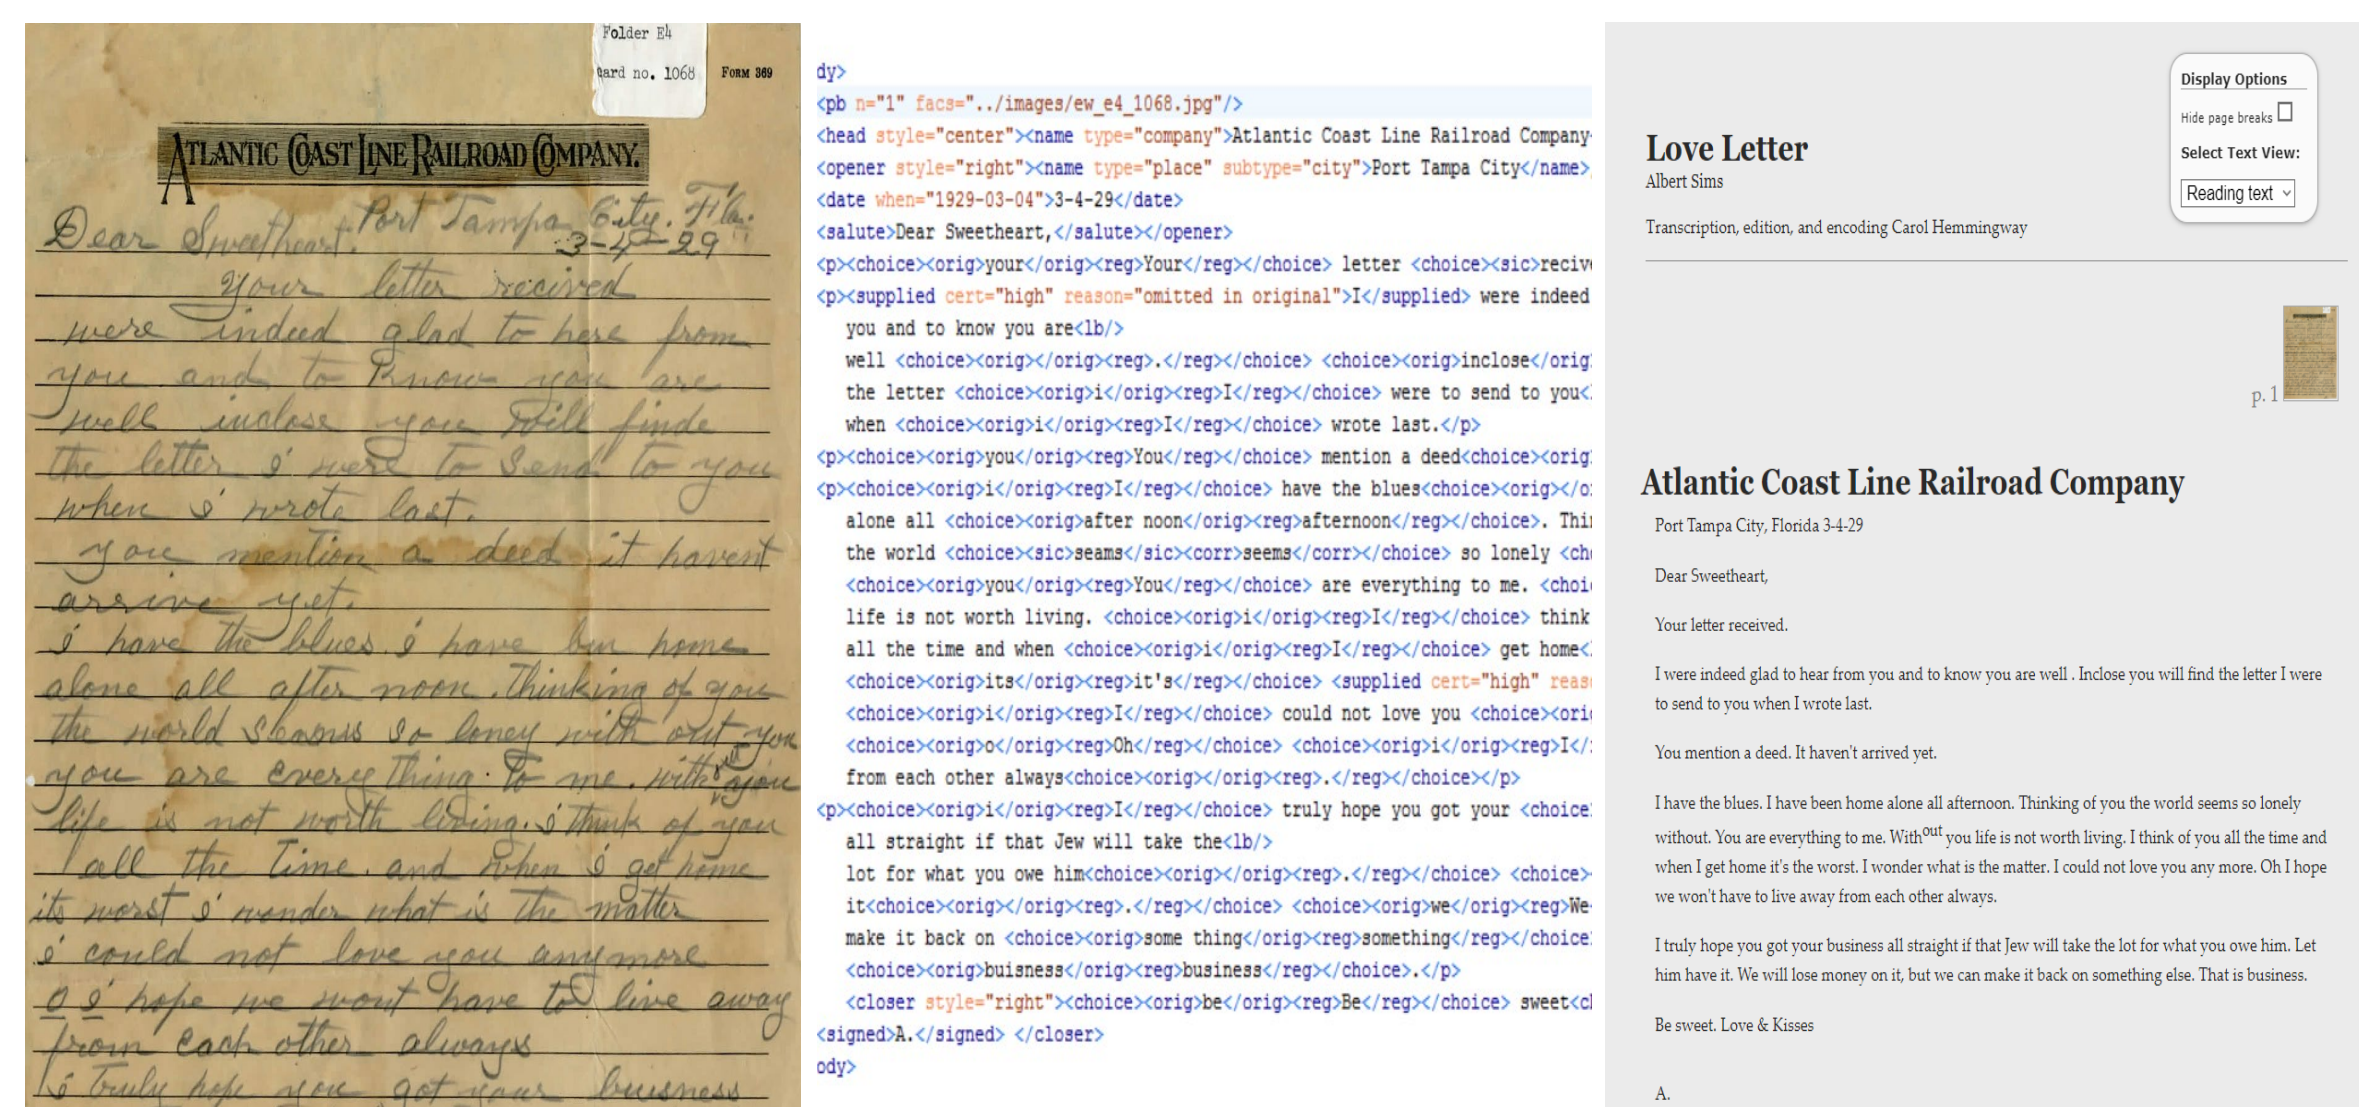 Folder E4
card no. 1068
FORM 369
ATLANTIC COAST LINE RAILROAD COMPANY.
Port Tampa City. Fla.
Dear Sweetheart. 3-4-29
Your letter recived
were indeed glad to here from
you and to know you are
well inclose you will finde
the letter i were to send to you
when i wrote last.
you mention a deed it havent
arrive yet.
i have the blues. i have bin home
alone all after noon. Thinking of you
the world seams so loney with out you
you are every thing to me. with out you
life is not worth living. i think of you
all the time. and when i get home
its worst i wonder what is the matter
i could not love you anymore
o i hope we wont have to live away
from each other always
i truly hope you got your buisness
dy>
<pb n="1" facs="../images/ew_e4_1068.jpg"/>
<head style="center"><name type="company">Atlantic Coast Line Railroad Company
<opener style="right"><name type="place" subtype="city">Port Tampa City</name>
<date when="1929-03-04">3-4-29</date>
<salute>Dear Sweetheart,</salute></opener>
<p><choice><orig>your</orig><reg>Your</reg></choice> letter <choice><sic>recive
<p><supplied cert="high" reason="omitted in original">I</supplied> were indeed
you and to know you are<lb/>
well <choice><orig></orig><reg>.</reg></choice> <choice><orig>inclose</orig
the letter <choice><orig>i</orig><reg>I</reg></choice> were to send to you<
when <choice><orig>i</orig><reg>I</reg></choice> wrote last.</p>
<p><choice><orig>you</orig><reg>You</reg></choice> mention a deed<choice><orig
<p><choice><orig>i</orig><reg>I</reg></choice> have the blues<choice><orig></o
alone all <choice><orig>after noon</orig><reg>afternoon</reg></choice>. Thi
the world <choice><sic>seams</sic><corr>seems</corr></choice> so lonely <ch
<choice><orig>you</orig><reg>You</reg></choice> are everything to me. <choi
life is not worth living. <choice><orig>i</orig><reg>I</reg></choice> think
all the time and when <choice><orig>i</orig><reg>I</reg></choice> get home<
<choice><orig>its</orig><reg>it's</reg></choice> <supplied cert="high" reas
<choice><orig>i</orig><reg>I</reg></choice> could not love you <choice><ori
<choice><orig>o</orig><reg>Oh</reg></choice> <choice><orig>i</orig><reg>I</
from each other always<choice><orig></orig><reg>.</reg></choice></p>
<p><choice><orig>i</orig><reg>I</reg></choice> truly hope you got your <choice
all straight if that Jew will take the<lb/>
lot for what you owe him<choice><orig></orig><reg>.</reg></choice> <choice>
it<choice><orig></orig><reg>.</reg></choice> <choice><orig>we</orig><reg>We
make it back on <choice><orig>some thing</orig><reg>something</reg></choice
<choice><orig>buisness</orig><reg>business</reg></choice>.</p>
<closer style="right"><choice><orig>be</orig><reg>Be</reg></choice> sweet<c
<signed>A.</signed> </closer>
ody>
Display Options
Hide page breaks
Select Text View:
Reading text
Love Letter
Albert Sims
Transcription, edition, and encoding Carol Hemmingway
p. 1
Atlantic Coast Line Railroad Company
Port Tampa City, Florida 3-4-29
Dear Sweetheart,
Your letter received.
I were indeed glad to hear from you and to know you are well . Inclose you will find the letter I were
to send to you when I wrote last.
You mention a deed. It haven't arrived yet.
I have the blues. I have been home alone all afternoon. Thinking of you the world seems so lonely
without. You are everything to me. Without you life is not worth living. I think of you all the time and
when I get home it's the worst. I wonder what is the matter. I could not love you any more. Oh I hope
we won't have to live away from each other always.
I truly hope you got your business all straight if that Jew will take the lot for what you owe him. Let
him have it. We will lose money on it, but we can make it back on something else. That is business.
Be sweet. Love & Kisses
A.